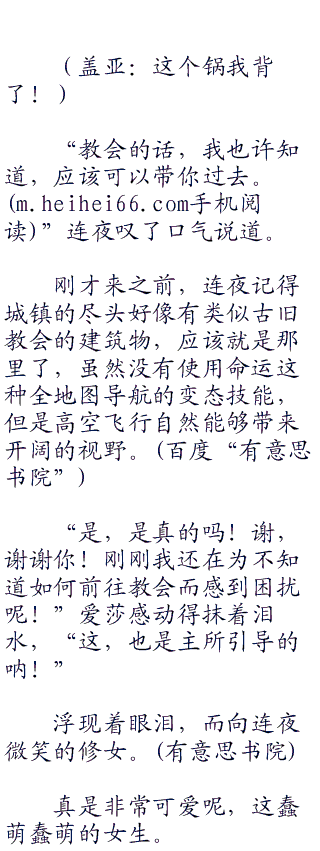 （盖亚：这个锅我背
了！）
“教会的话，我也许知
道，应该可以带你过去。
(m.heihei66.com手机阅
读)”连夜叹了口气说道。
刚才来之前，连夜记得
城镇的尽头好像有类似古旧
教会的建筑物，应该就是那
里了，虽然没有使用命运这
种全地图导航的变态技能，
但是高空飞行自然能够带来
开阔的视野。(百度“有意思
书院”)
“是，是真的吗！谢，
谢谢你！刚刚我还在为不知
道如何前往教会而感到困扰
呢！”爱莎感动得抹着泪
水，“这，也是主所引导的
呐！”
浮现着眼泪，而向连夜
微笑的修女。(有意思书院)
真是非常可爱呢，这蠢
萌蠢萌的女生。